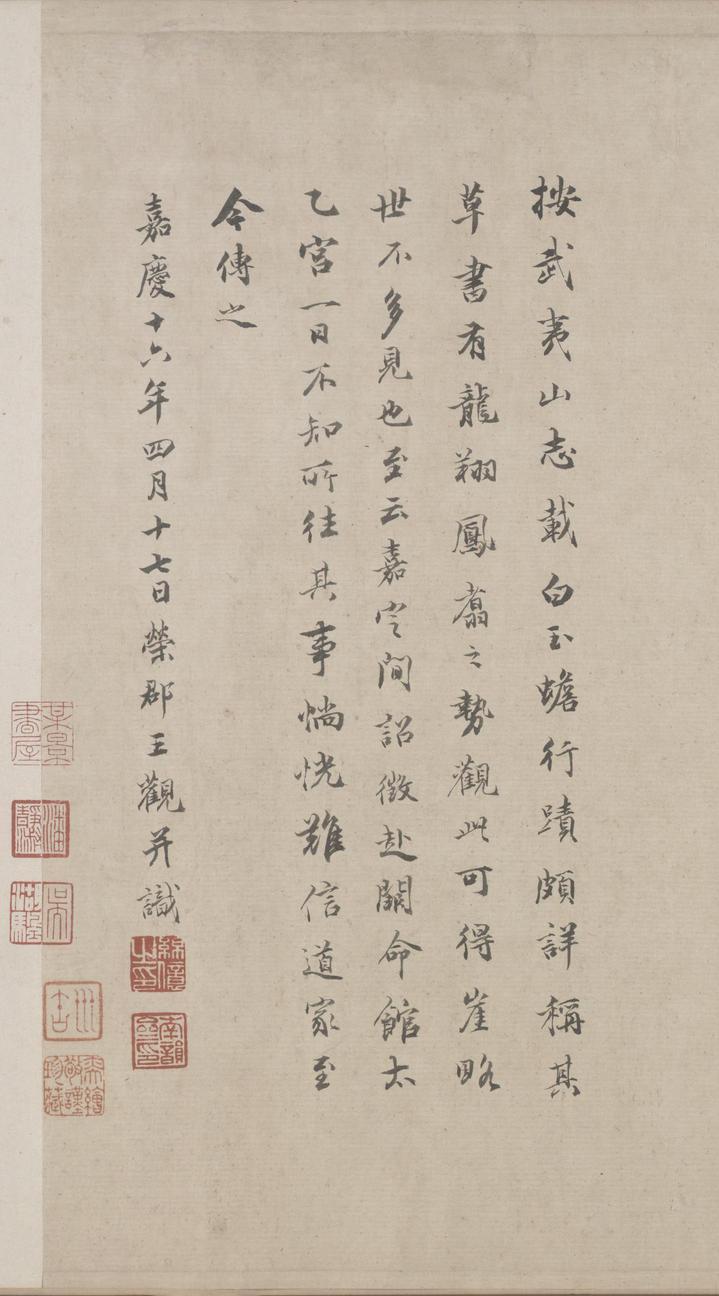 按武夷山志載白玉蟾行蹟頗詳稱其
草書有龍翔鳳翥之勢觀此可得崖略
世不多見也至云嘉定間詔徵赴闕命館太
乙宮一日不知所往其事惝恍難信道家至
今傳之
嘉慶十六年四月十七日榮郡王觀并識
南韻